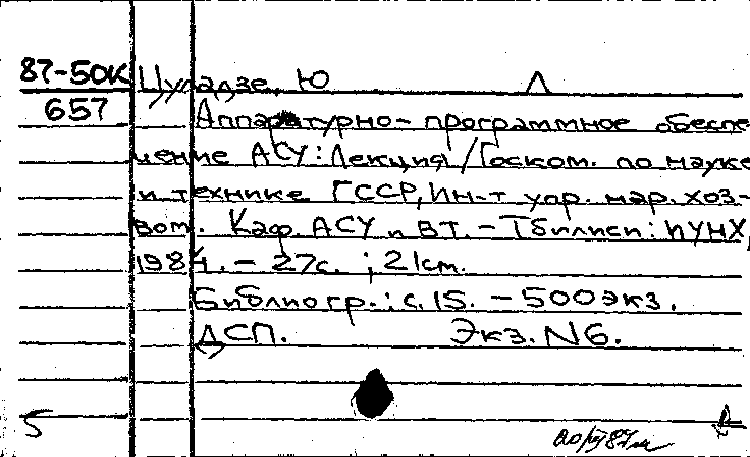 87-50К Цуладзе, Ю Л
657 Аппаратурно-программное обеспе
чение АСУ: Лекция / Госком. по науке
и технике ГССР, Ин-т упр. нар. хоз-
вом. Каф. АСУ и ВТ. - Тбилиси: ИУНХ,
1984. - 27с. ; 21см.
Библиогр.: с. 15. - 500экз.
ДСП. Экз. N6.
5